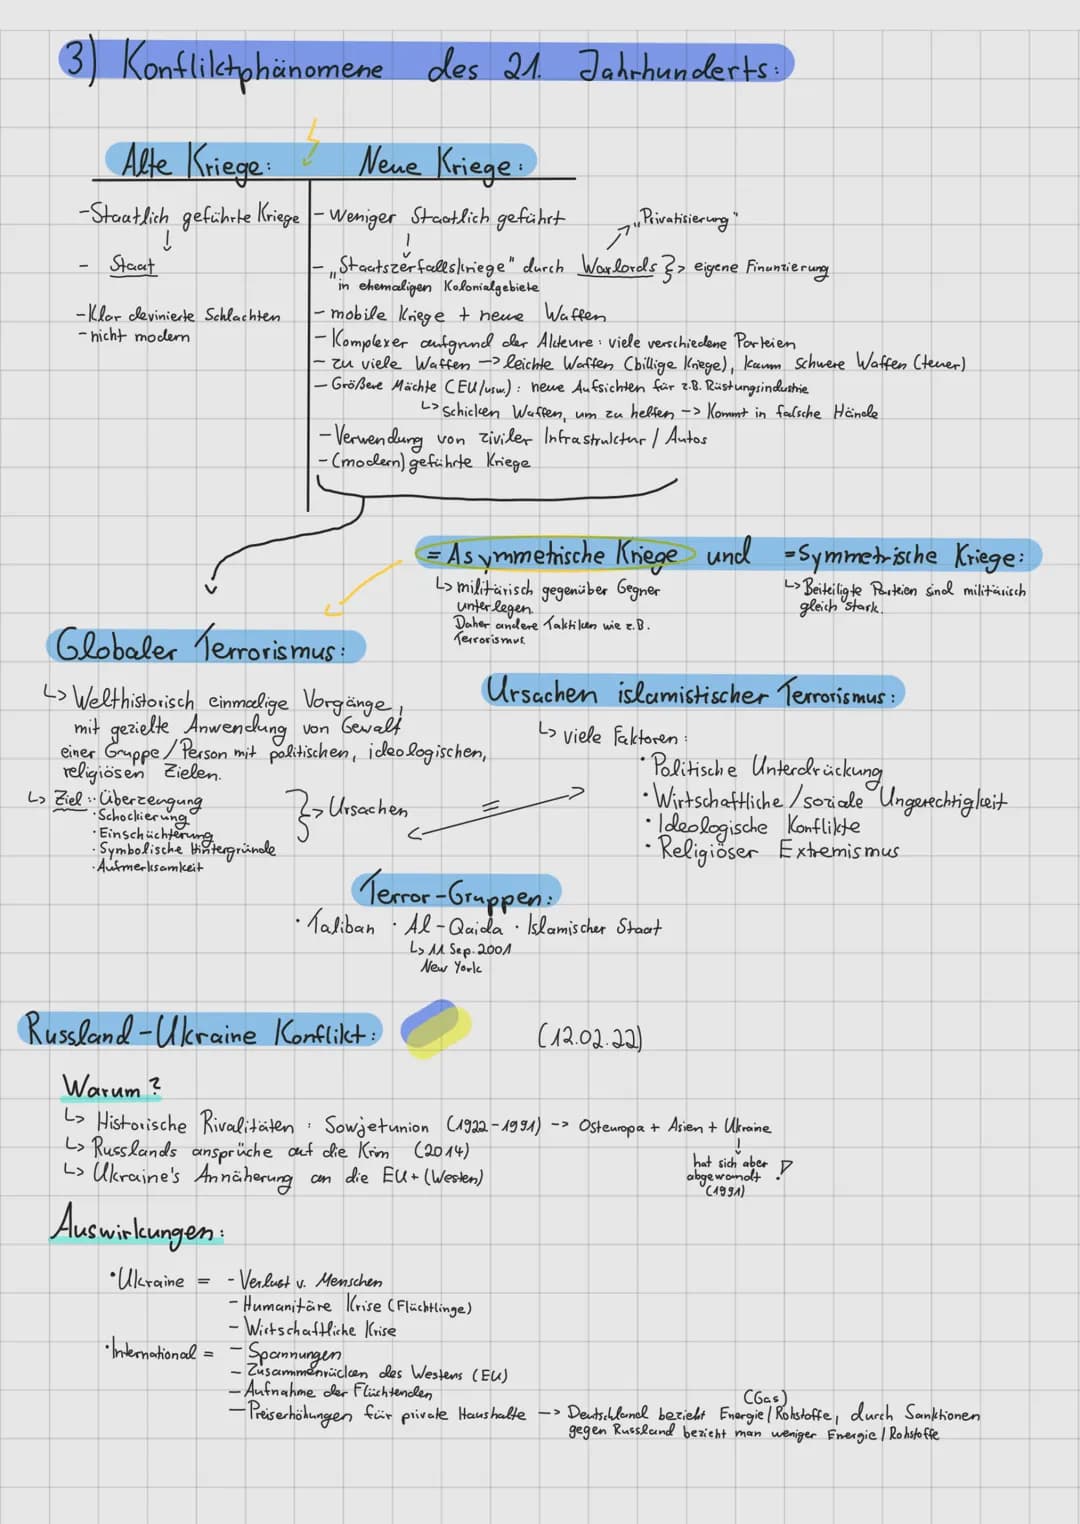 3) Konfliktphänomene des 21. Jahrhunderts:
Alte Kriege: Neue Kriege:
- Staatlich geführte Kriege
- Staat
- Klar devinierte Schlachten
- nicht modern
- Weniger Staatlich geführt
„Privatisierung"
- „Staatszerfallskriege" durch Warlords }> eigene Finanzierung
in ehemaligen Kolonialgebiete
- mobile Kriege + neue Waffen
- Komplexer aufgrund der Akteure: viele verschiedene Parteien
- zu viele Waffen -> leichte Waffen (billige Kriege), kaum schwere Waffen (teuer)
- Größere Mächte (EU/usw.): neue Aufsichten für z.B. Rüstungsindustrie
↳ schicken Waffen, um zu helfen -> Kommt in falsche Hände
- Verwendung von ziviler Infrastruktur / Autos
- (modern) geführte Kriege
= Asymmetrische Kriege und = Symmetrische Kriege:
↳ militärisch gegenüber Gegner
unterlegen.
Daher andere Taktiken wie z.B.
Terrorismus.
↳ Beiteiligte Parteien sind militärisch
gleich stark.
Globaler Terrorismus:
↳ Welthistorisch einmalige Vorgänge,
mit gezielte Anwendung von Gewalt
einer Gruppe / Person mit politischen, ideologischen,
religiösen Zielen.
↳ Ziel: · Überzeugung
· Schockierung
· Einschüchterung
· Symbolische Hintergründe
· Aufmerksamkeit
}> Ursachen
=
Ursachen islamistischer Terrorismus:
↳ viele Faktoren:
· Politische Unterdrückung
· Wirtschaftliche / soziale Ungerechtigkeit
· Ideologische Konflikte
· Religiöser Extremismus
Terror-Gruppen:
· Taliban · Al-Qaida · Islamischer Staat
↳ 11 Sep. 2001
New York
Russland-Ukraine Konflikt: (12.02.22)
Warum?
↳ Historische Rivalitäten: Sowjetunion (1922-1991) -> Osteuropa + Asien + Ukraine
↳ Russlands ansprüche auf die Krim (2014)
↳ Ukraine's Annäherung an die EU + (Westen)
hat sich aber
abgewandt !
(1991)
Auswirkungen:
· Ukraine = - Verlust v. Menschen
- Humanitäre Krise (Flüchtlinge)
- Wirtschaftliche Krise
· International = - Spannungen
- Zusammenrücken des Westens (EU)
- Aufnahme der Flüchtenden
(Gas)
- Preiserhöhungen für private Haushalte -> Deutschland bezieht Energie/Rohstoffe, durch Sanktionen
gegen Russland bezieht man weniger Energie / Rohstoffe